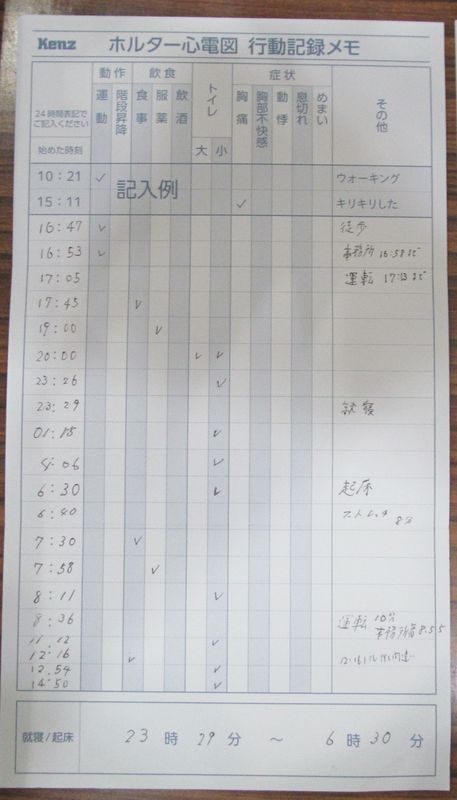 Kenz ホルター心電図 行動記録メモ
動作 飲食 トイレ 症状
24時間表記で
ご記入ください
始めた時刻 運動 階段昇降 食事 服薬 飲酒 大 小 胸痛 胸部不快感 動悸 息切れ めまい その他
10:21 ✓ 記入例 ウオーキング
15:11 ✓ キリキリした
16:47 ✓ 徒歩
16:53 ✓ 事務所 16:58まで
17:05 運転 17:13まで
17:45 ✓
19:00 ✓
20:00 ✓ ✓
23:26 ✓
23:29 就寝
01:15 ✓
4:06 ✓
6:30 ✓ 起床
6:40 ストレッチ 8分
7:30 ✓
7:58 ✓
8:11 ✓
8:36 運転 10分
事務所着 8:55
11:12 ✓
12:16 ✓
12:54 ✓
14:50 ✓
就寝/起床 23時29分 ~ 6時30分